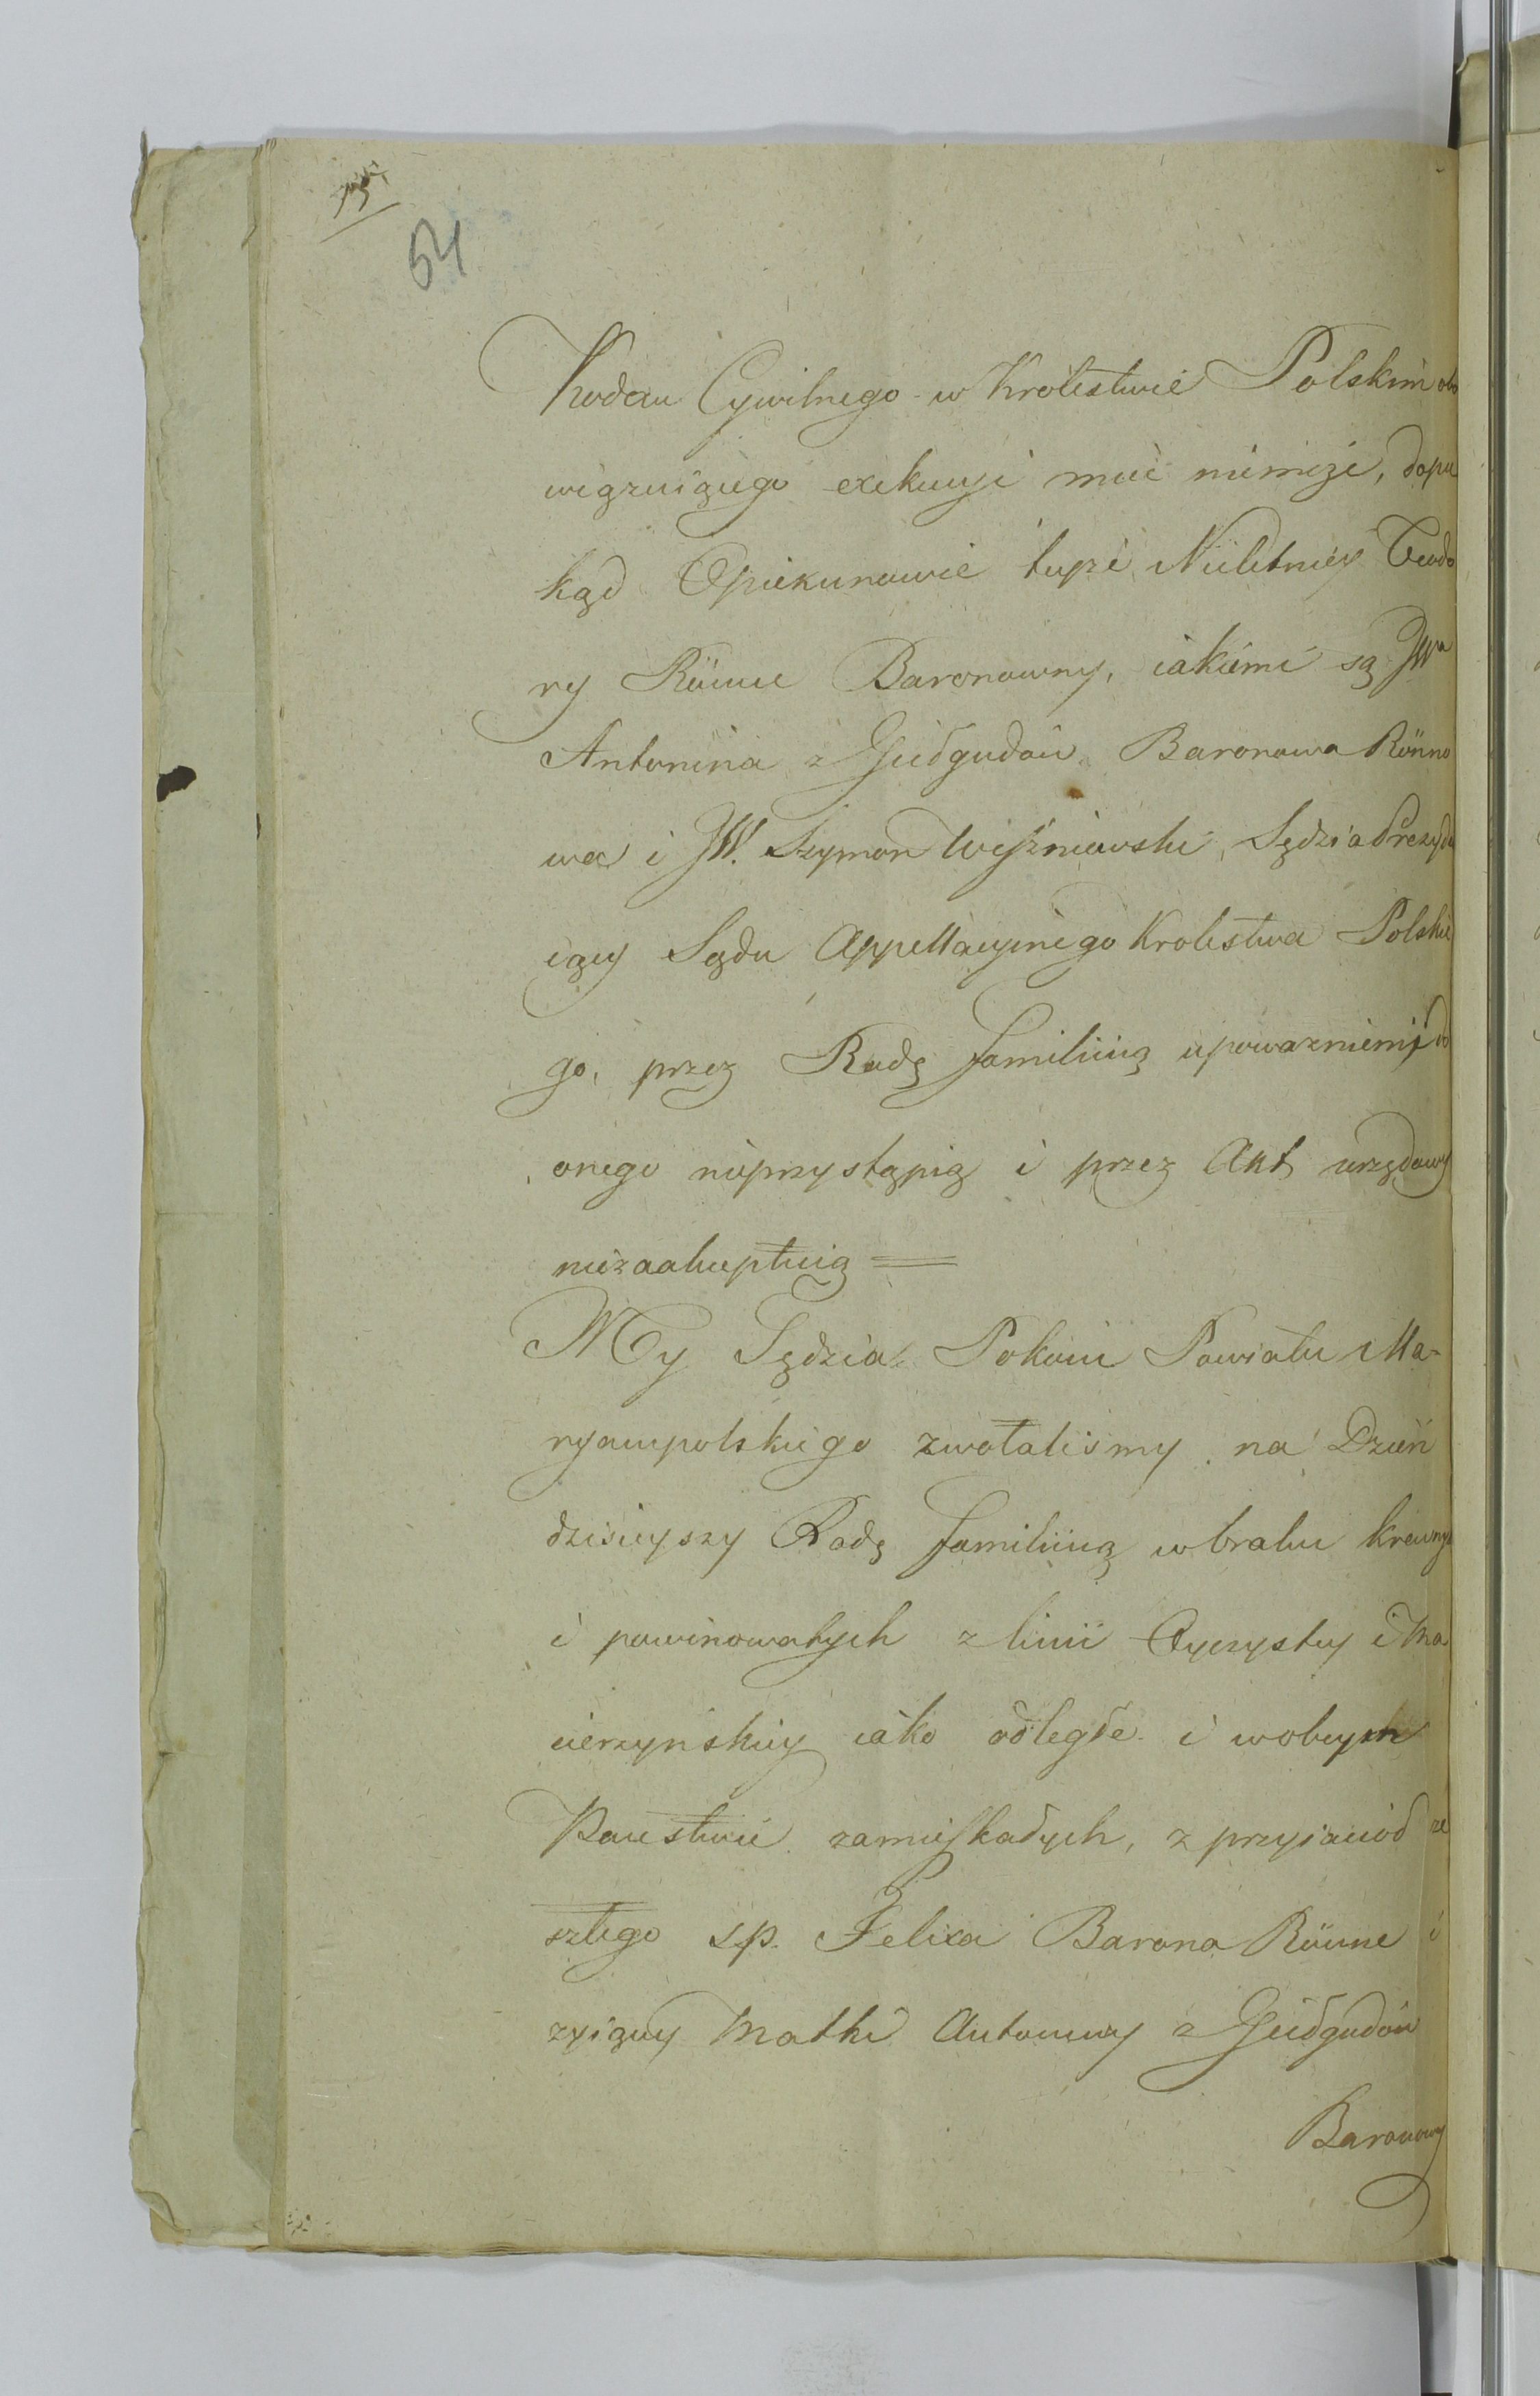 54
Kodexu Cywilnego w Krolestwie Polskim obo
wiązuiącego exekucyi mieć niemoże, dopu
kąd Opiekunowie teyże Nieletniey Teodo
ry Rönne Baronowny, iakiemi są JWa
Antonina z Giedgudow Baronowa Rönno
wa i JW. Szymon Wiszniewski Sędzia Prezydu
iący Sądu Appellacyinego Krolestwa Polskie
go, przez Radę familiiną upoważnieni do
onego nieprzystąpią i przez Akt urzędowy
niezaakceptuią =
My Sędzia Pokoiu Powiatu Ma-
ryampolskiego zwołaliśmy na Dzień
dzisieyszy Radę familiiną w braku krewnych
i powinowatych z linii Oyczystey i Ma
cierzyńskiey iako odległe i w obcym
Państwie zamieszkałych, z przyiaciół ze
szłego ś.p. Felixa Barona Rönne i
żyiącey Matki Antoniny z Giedgudow
Baronowy